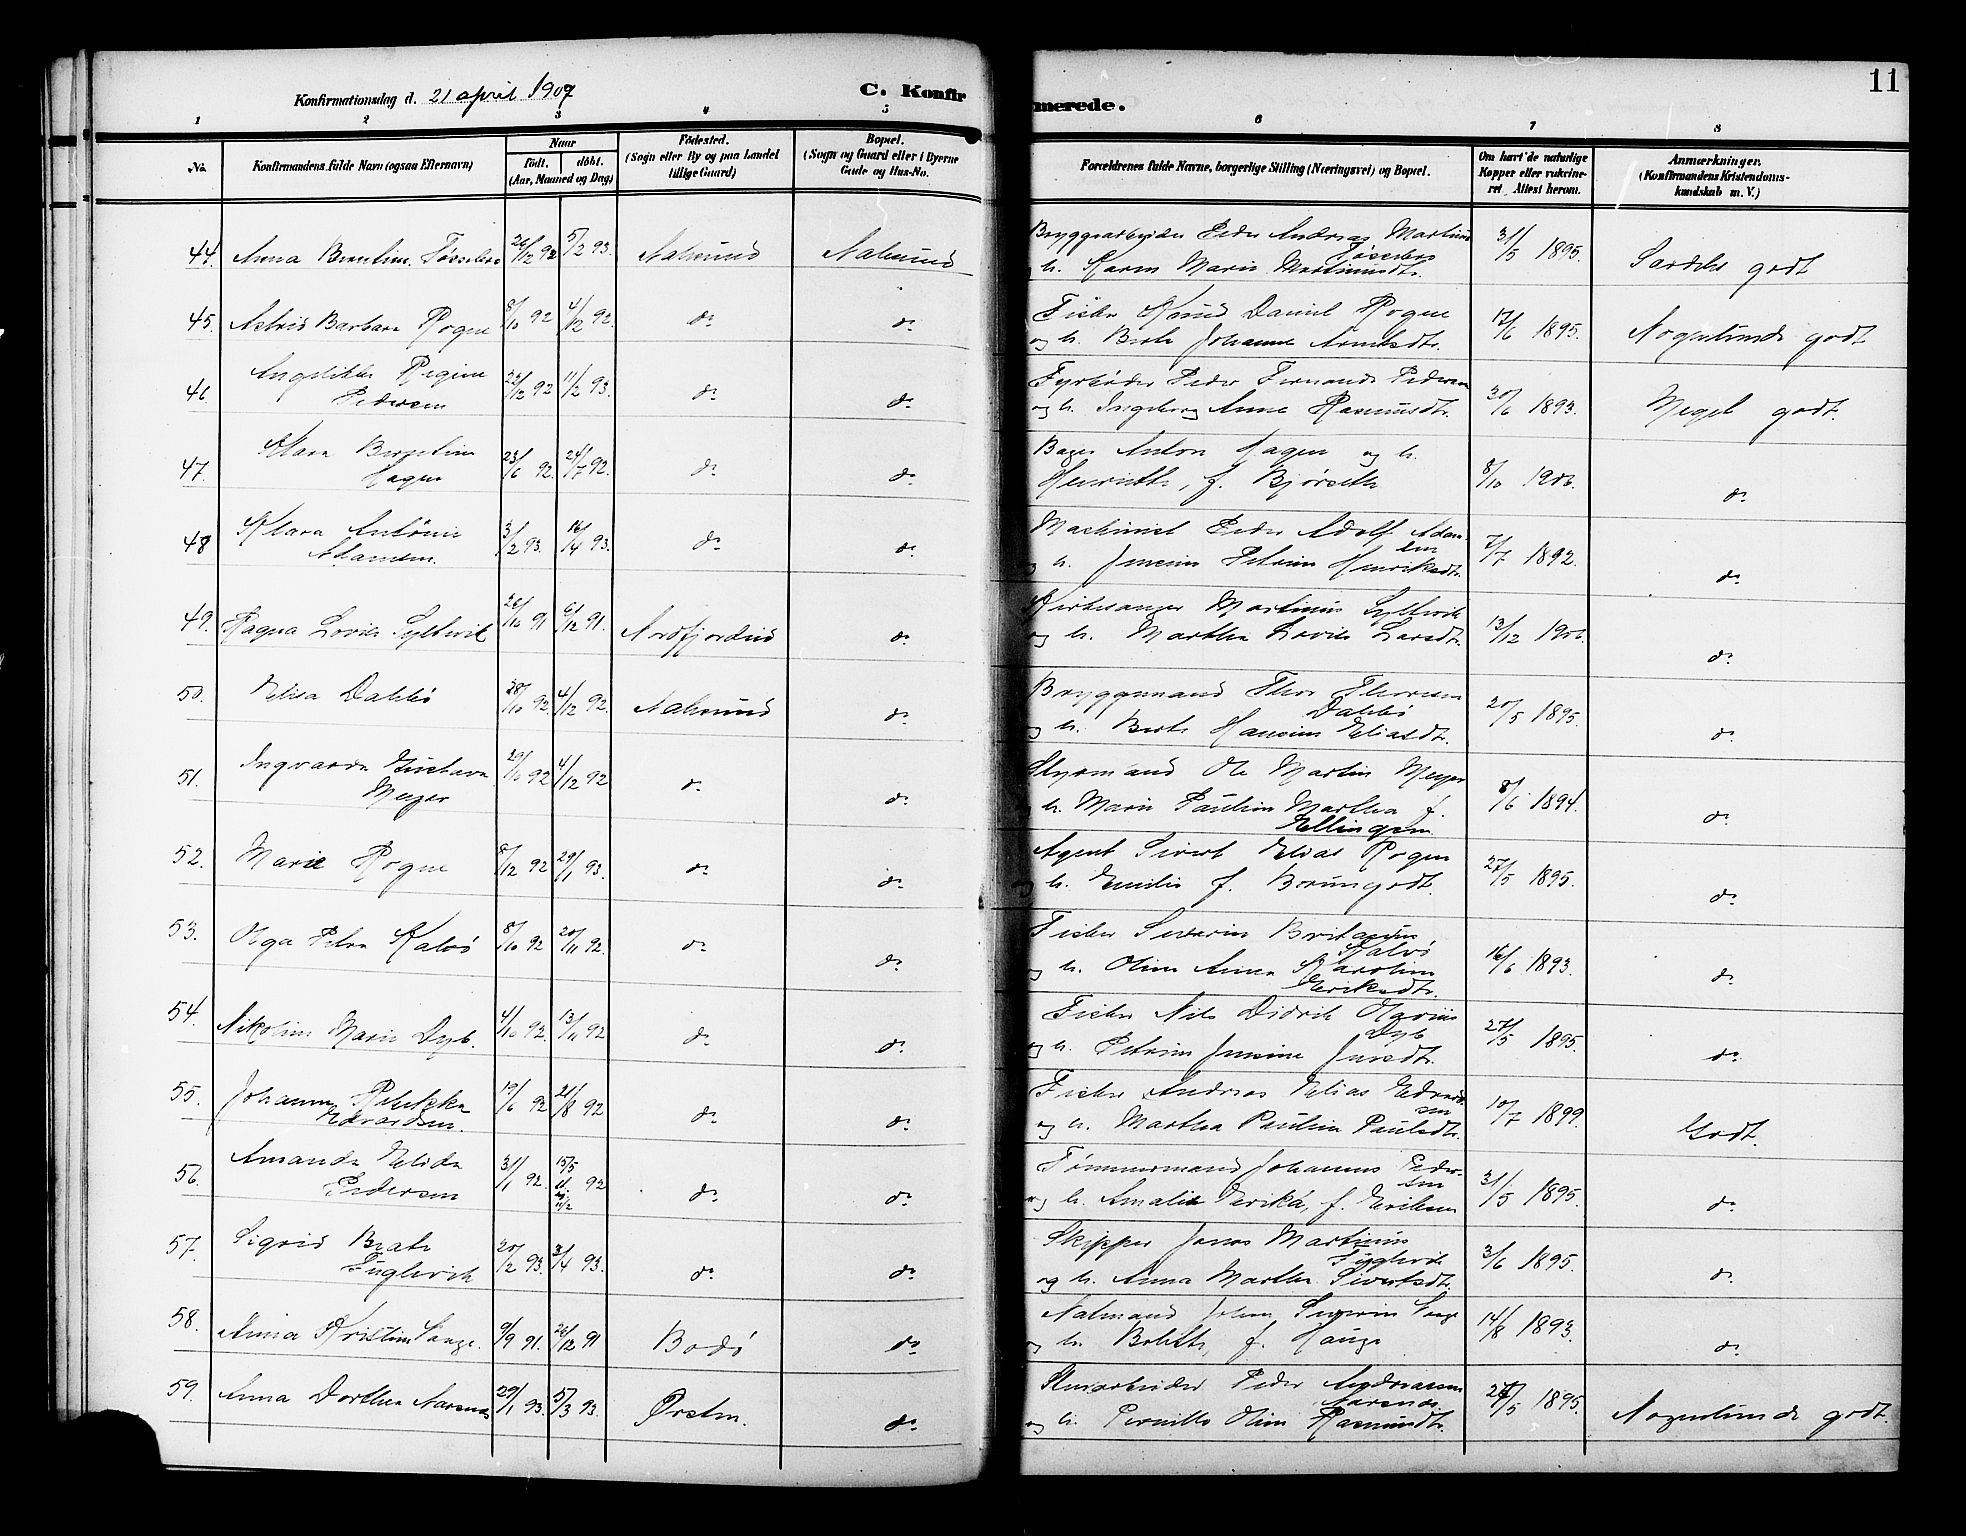 11
Konfirmationsdag d. 21 april 1907
C. Konfirmerede.
1 2 3 4 5 6 7 8
No.
Konfirmandens fulde Navn (ogsaa Efternavn)
Naar
født. døbt.
(Aar, Maaned og Dag)
Fødested.
(Sogn eller By og paa Landet
tillige Gaard)
Bopæl.
(Sogn og Gaard eller i Byerne
Gade og Hus-No.
Forældrenes fulde Navne, borgerlige Stilling (Næringsvei) og Bopæl.
Om havt de naturlige
Kopper eller vakcine-
ret Attest herom.
Anmærkninger.
(Konfirmandens Kristendoms-
kundskab m. V.)
44. Anna Berntine 26/12 92 5/2 93. Aalesund Aalesund Bryggearbeider Peder Andreas Martinus 31/5 1895. Særdeles godt
og h. Karen Marie
45. Astrid Barbara Rogne 8/10 92 4/12 92. do do Fisker Knud Daniel Rogne 17/6 1895. Nogenlunde godt
og h. Berte Johanne
46. Angelikke Regine 23/12 92 11/2 93. do do Fyrbøder Peder Fernando Pedersen 30/6 1893. Meget godt
Pedersen og h. Ingeborg Anne Rasmusdtr.
47. Klara Berntine 23/6 92. 24/7 92. do do Bager Anton Hagen og h. 8/10 1906. do
Hagen Henriette, f. Bjørseth
48 Klara Antonie 3/2 93. 16/4 93. do do Maskinist Peder Adolf Adam- 7/7 1892. do
Adamsen. sen
og h. Jensine Petrine Henriksdtr.
49. Ragna Lovise Syltevik 26/10 91 6/12 91. Nordfjordeid do Kirkesanger Martinus Syltevik 13/12 1906. do
og h. Martha Lovise Larsdtr.
50. Elisa Dalebø 28/10 92. 4/12 92. Aalesund do Bryggemand Thor Thorsen 20/5 1895. do
Dalebø
og h. Berte Hansine Eliasdtr.
51. Ingvarda Gustava 29/10 92 4/12 92 do do Styrmand Ole Martin Meyer 8/6 1894. do
Meyer h. Marie Pauline Martha f.
Ellingsen
52. Marie Rogne 8/12 92 29/1 93. do do Agent Sivert Elias Rogne 27/5 1895. do
og h. Emilie f. Borgundgodt.
53. Olga Petra Kalvø 8/10 92 20/11 92. do do Fisker Severin 16/6 1893. do
Kalvø
og h. Oline Anna Karoline
Eriksdtr.
54. Nikoline Marie Dyb. 4/10 92. 13/11 92 do do Fisker Nils Didrik Olavius 27/5 1895. do
Dyb
og h. Petrine Jensine Jensdtr.
55. Johanna Rebekka 19/6 92 21/8 92 do do Fisker Andreas Elias Edvard- 10/7 1899. Godt.
Edvardsen. sen
og h. Martha Pauline Paulsdtr.
56. Amanda Elida 31/1 92. 15/5 92 do do Tømmermand Johannes Peder- 31/5 1895. do
Pedersen sen
og h. Amalie Erika, f. Eriksen
57. Sigrid Beate 20/2 93. 3/4 93. do do Skipper Jonas Martinus 3/6 1895. do
Fuglevik Fuglevik
og h. Anna Marthe Sivertsdtr.
58. Anna Kristine 9/9 91. 26/12 91 Bodø do Johan Severin 14/8 1893. do
og h. Bolette, f. Hauge
59. Anna Dorthea Aarsnes 29/1 93. 5/3 93. Ørsten. do Stuearbeider Peder Andreassen 27/5 1895. Nogenlunde godt.
Aarsnes
og h. Pernille Oline Rasmusdtr.